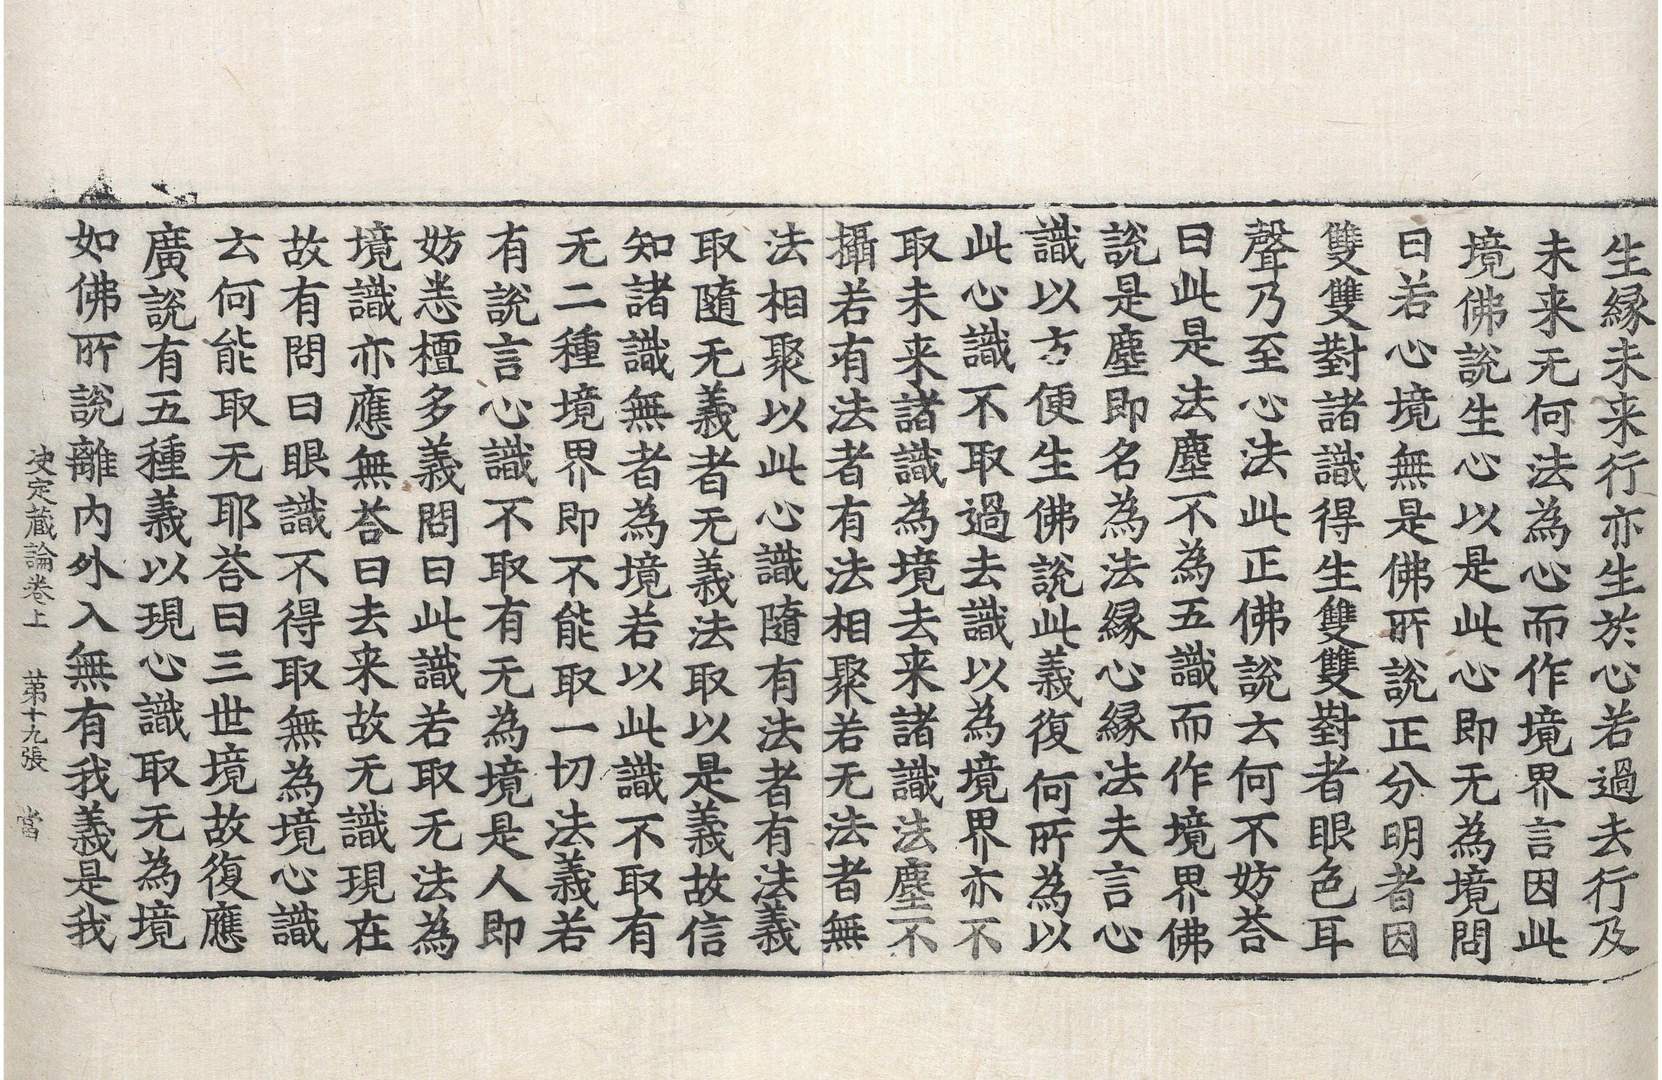 生縁未来行亦生於心若過去行及
未来无何法為心而作境界言因此
境佛說生心以是此心即无為境問
曰若心境無是佛所說正分明者因
雙雙對諸識得生雙雙對者眼色耳
聲乃至心法此正佛說云何不妨荅
曰此是法塵不為五識而作境界佛
說是塵即名為法縁心縁法夫言心
識以方便生佛說此義復何所為以
此心識不取過去識以為境界亦不
取未来諸識為境去来諸識法塵不
攝若有法者有法相聚若无法者無
法相聚以此心識隨有法者有法義
取隨无義者无義法取以是義故信
知諸識無者為境若以此識不取有
无二種境界即不能取一切法義若
有說言心識不取有无為境是人即
妨恙檀多義問曰此識若取无法為
境識亦應無荅曰去来故无識現在
故有問曰眼識不得取無為境心識
云何能取无耶荅曰三世境故復應
廣說有五種義以現心識取无為境
如佛所說離内外入無有我義是我
决定藏論卷上　第十九張　當